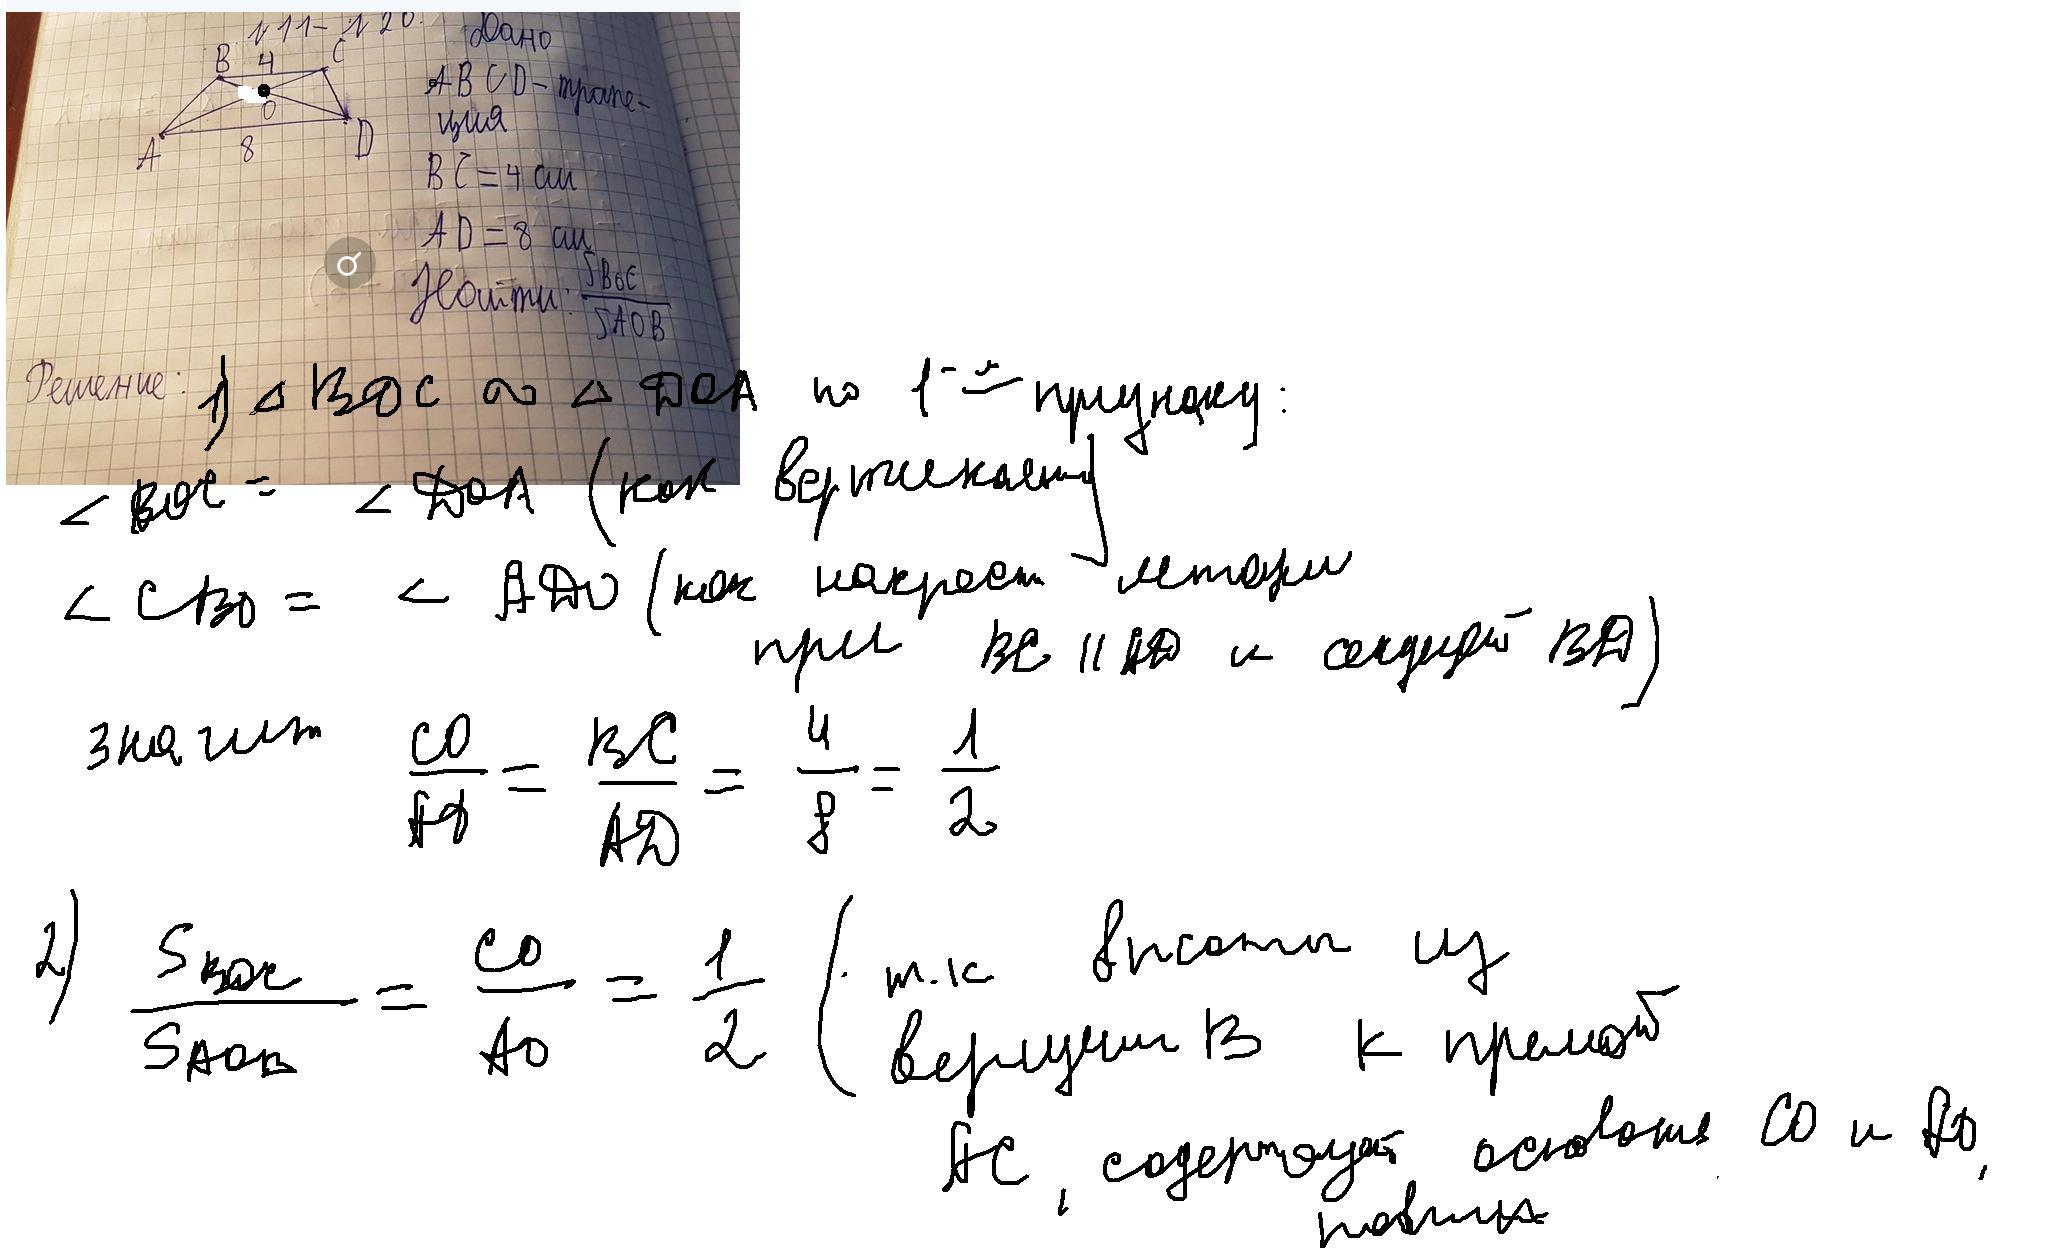 №11-№20.
B 4 C
O
A 8 D
Дано
ABCD - трапе-
ция
BC = 4 см
AD = 8 см
Найти: SBOC / SAOB
Решение: 1) △ BOC ∾ △ DOA по 1-му признаку:
∠ BOC = ∠ DOA (как вертикальн)
∠ CBO = ∠ ADO (как накрест летащи
при BC || AD и секущей BD)
значит CO/AO = BC/AD = 4/8 = 1/2
2) SBOC/SAOB = CO/AO = 1/2 ( т.к высоты из
вершин B к прямой
AC, содержащей основания CO и AO,
равны